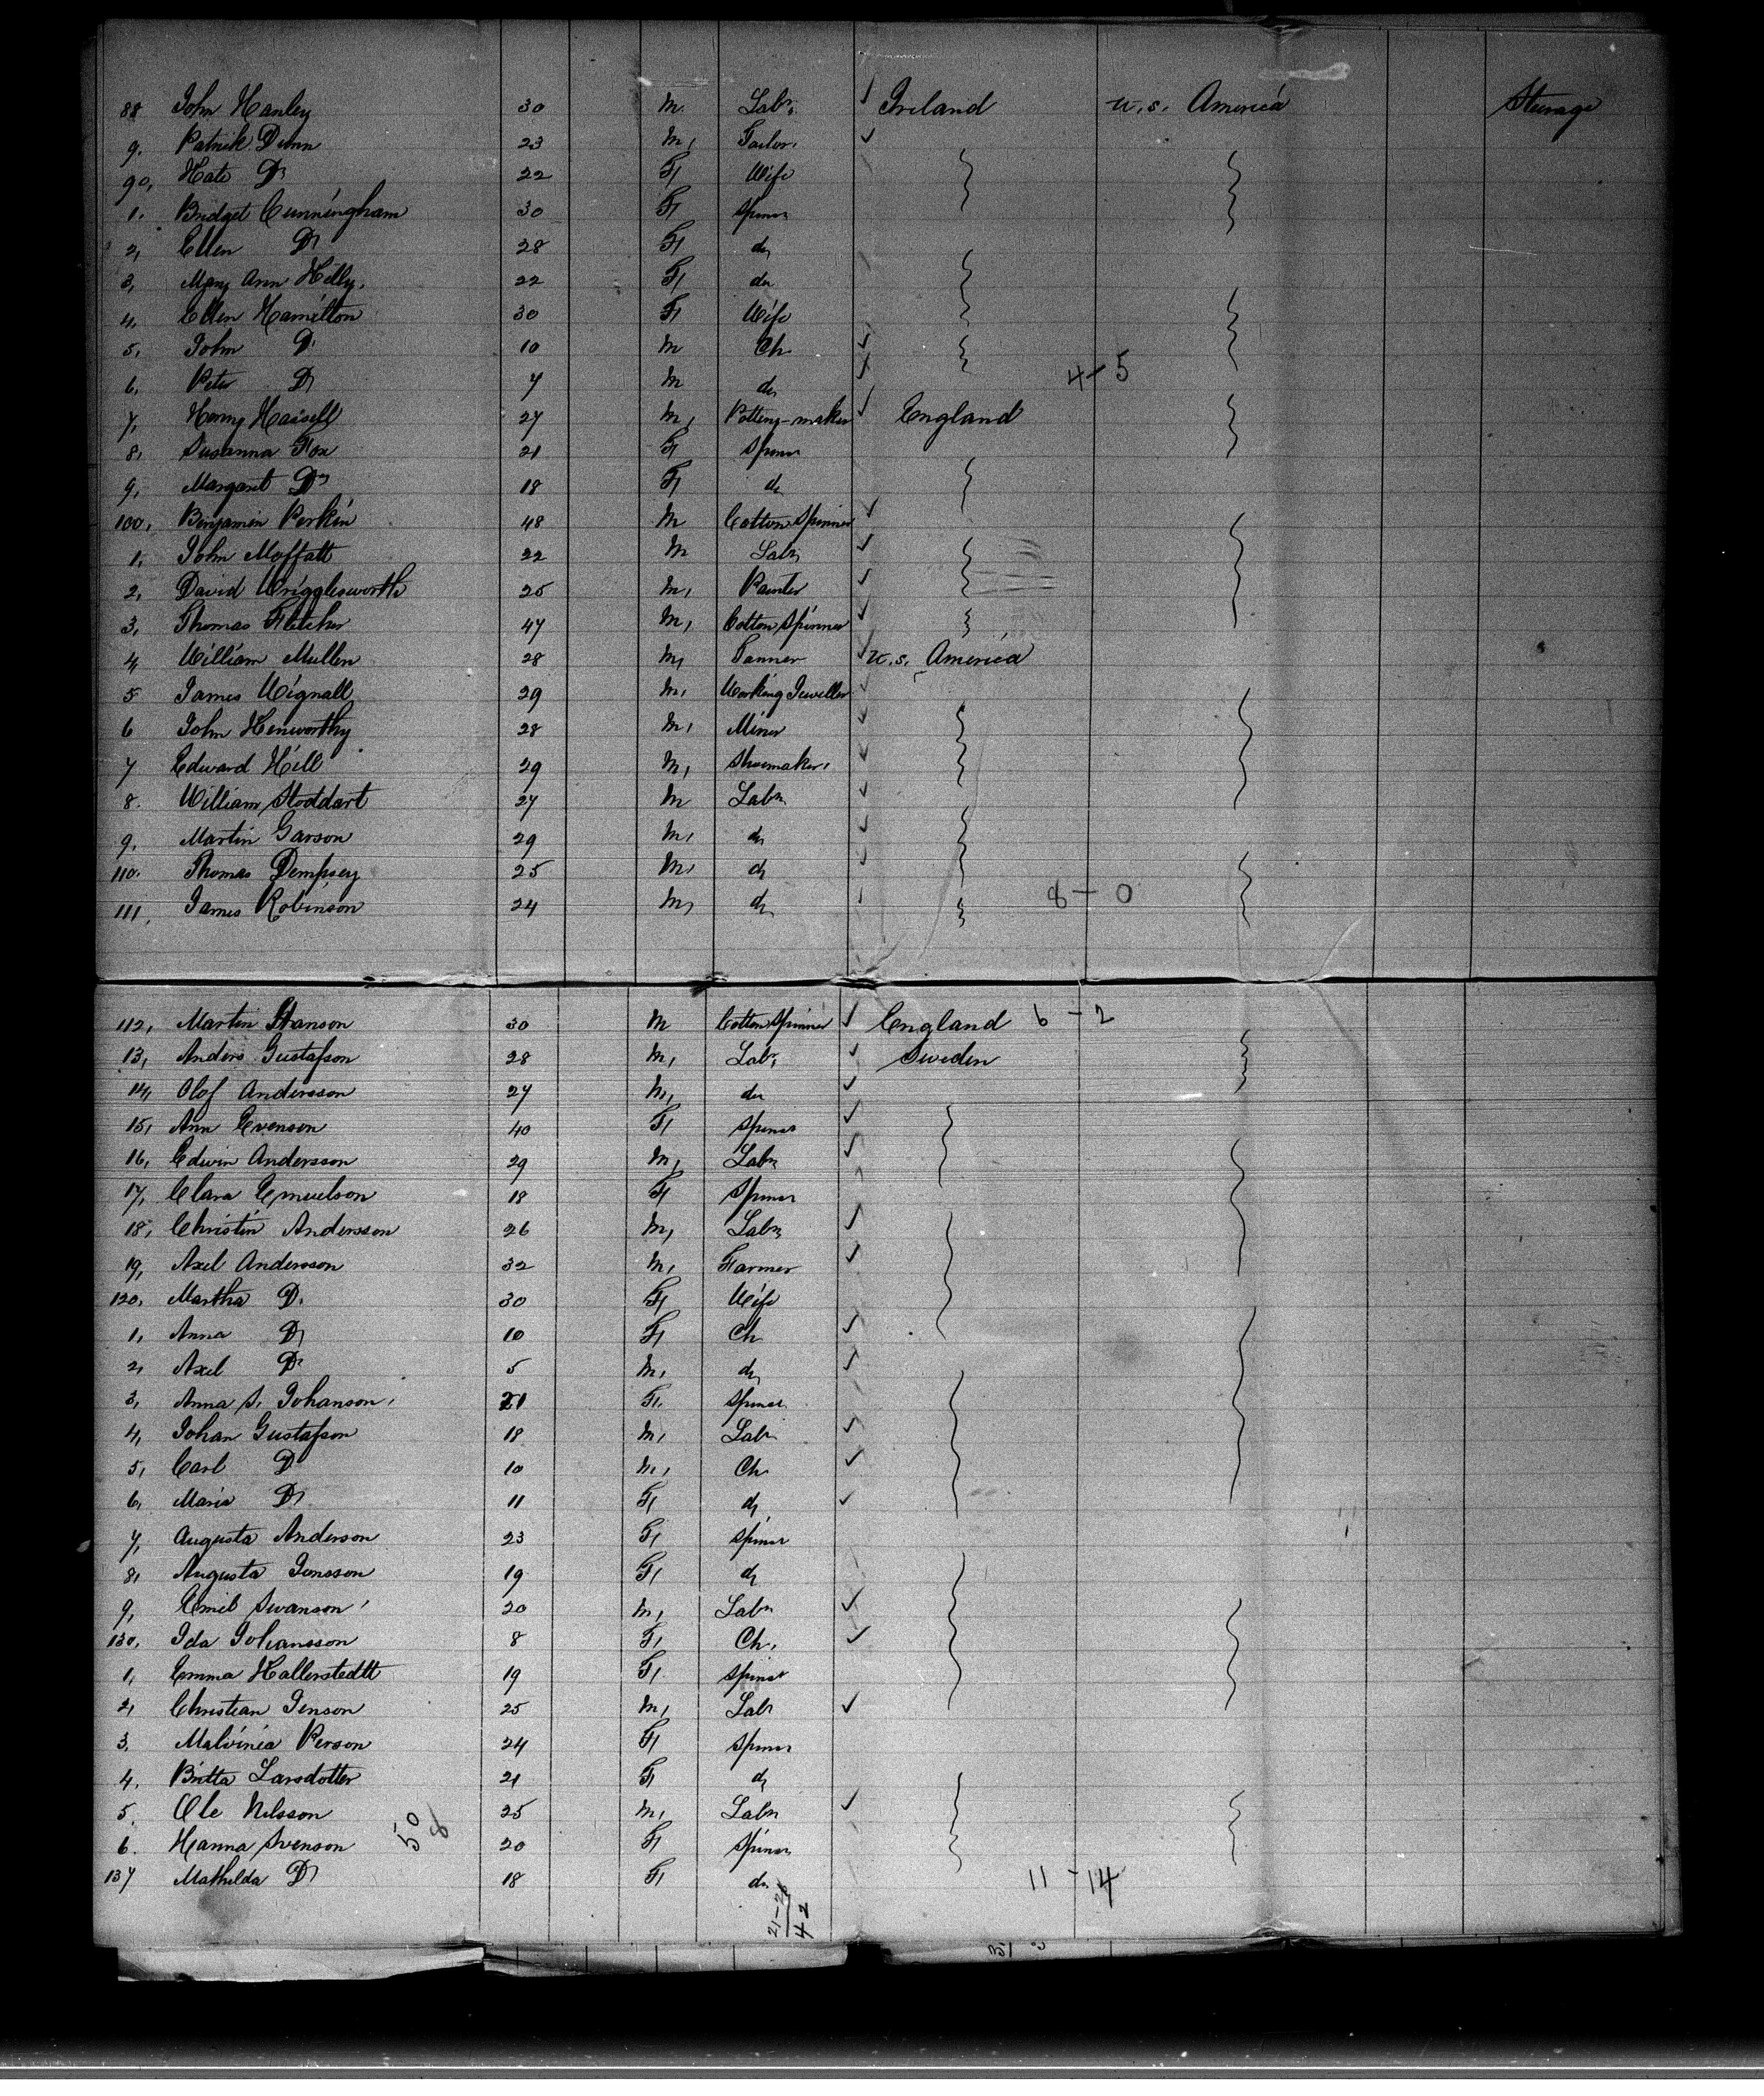 88 John Hanley 30 M. Labr, ✓ Ireland U.S. America Steerage
9. Patrick Dunn 23 M, Tailor, ✓
90, Kate Do 22 F, Wife
1. Bridget Cunningham 30 F, Spinsr
2, Ellen Do 28 F, do
3, Mary Ann Kelly. 22 F, do
4, Ellen Hamilton 30 F, Wife
5, John Do 10 M Ch ✓
6, Peter Do 7 M do ✓ 4-5
7, Henry Hassell 27 M, Pottery-maker ✓ England
8, Susanna Fox 21 F, Spinsr
9, Margaret Do 18 F, do
100, Benjamin Perkin 48 M Cotton Spinner ✓
1, John Moffatt 22 M Labr, ✓
2, David Wrigglesworth 25 M, Painter ✓
3, Thomas Fletcher 47 M, Cotton Spinner ✓
4, William Mullen 28 M, Tanner ✓ U.S. America
5 James Wignall 29 M, Working Jeweller ✓
6 John Kenworthy 28 M, Miner ✓
7 Edward Hill 29 M, Shoemaker, ✓
8. William Stoddart 27 M Labr ✓
9, Martin Garson 29 M, do ✓
110. Thomas Dempsey 25 M, do ✓
111, James Robinson 24 M, do ✓ 8-0
112, Martin Stanson 30 M Cotton Spinner ✓ England 6-2
13, Anders Gustafson 28 M, Labr, ✓ Sweden
14, Olof Andersson 27 M, do ✓
15, Ann Evenson 40 F, Spinsr ✓
16, Edwin Andersson 29 M, Labr ✓
17, Clara Emuelson 18 F, Spinsr
18, Christin Andersson 26 M, Labr ✓
19, Axel Andersson 32 M, Farmer ✓
120, Martha Do 30 F, Wife
1, Anna Do 10 F, Ch ✓
2, Axel Do 5 M, do ✓
3, Anna S. Johanson, 21 F, Spinsr
4, Johan Gustafson 18 M, Labr ✓
5, Carl Do 10 M, Ch ✓
6, Maria Do 11 F, do ✓
7, Augusta Anderson 23 F, Spinsr
8, Augusta Jonsson 19 F, do
9, Emil Swanson 20 M, Labr ✓
130, Ida Johansson 8 F, Ch, ✓
1, Emma Hallerstedtt 19 F, Spinsr
2, Christian Jenson 25 M, Labr ✓
3. Malvinia Person 24 F, Spinsr
4. Britta Larsdotter 21 F, do
5. Ole Nilsson 25 M, Labr ✓
6. Hanna Svenson 50 8 20 F, Spinsr
137 Mathilda Do 18 F, do 11-14
42